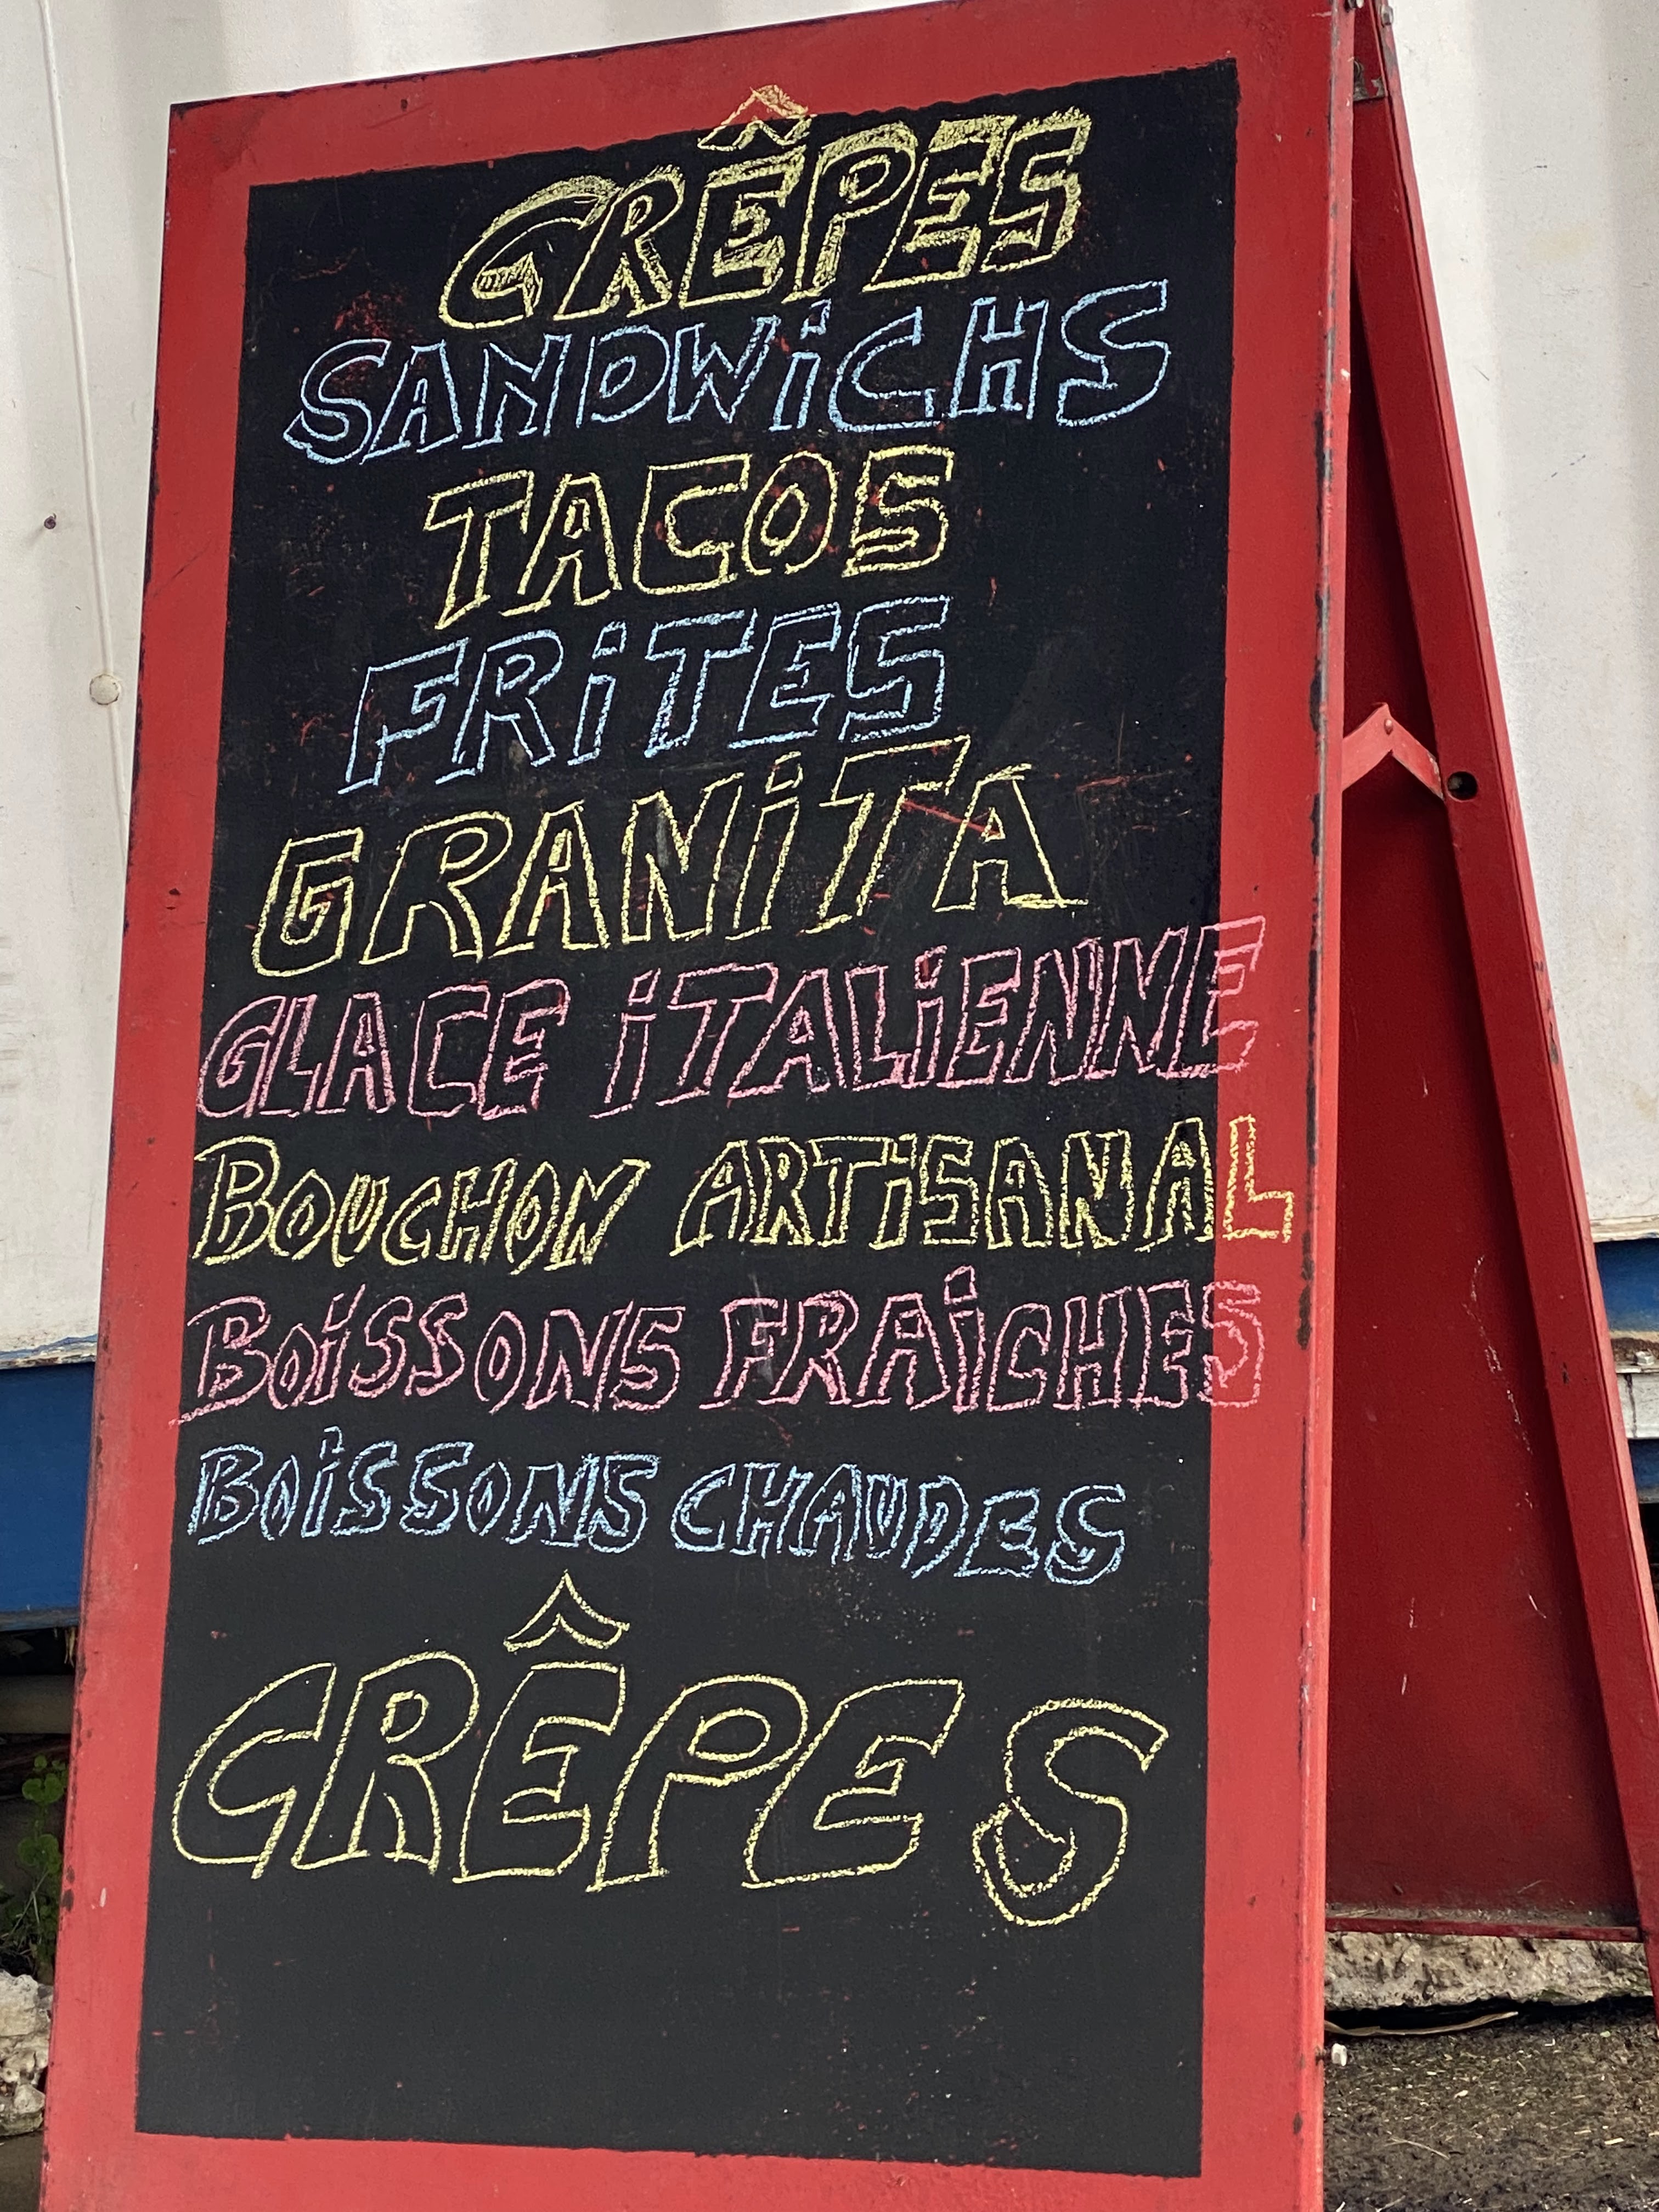 CRÊPES
SANDWiCHS
TACOS
FRiTES
GRANiTA
GLACE iTALiENNE
BOUCHON ARTiSANAL
BOiSSONS FRAiCHES
BOiSSONS CHAUDES
CRÊPES